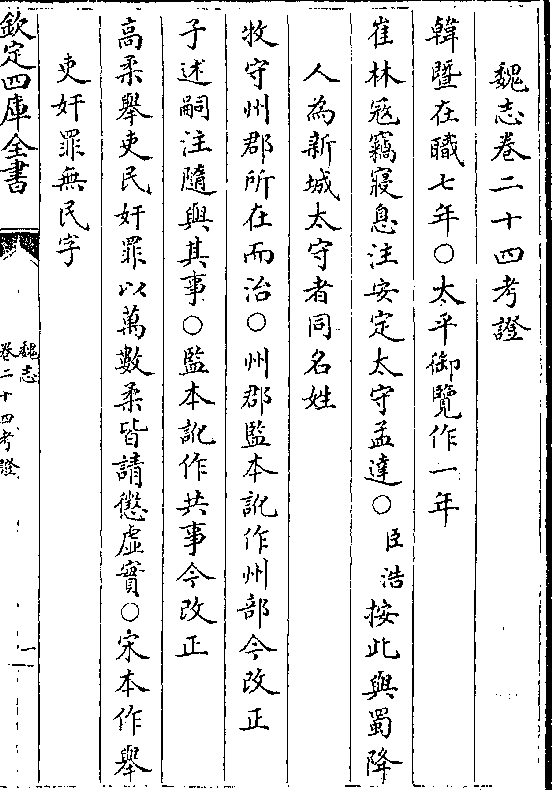 魏志卷二十四考證
韓暨在職七年○太平御覽作一年
崔林寇竊寢息注安定太守孟達○臣浩按此與蜀降
人為新城太守者同名姓
牧守州郡所在而治○州郡監本訛作州部今改正
子述嗣注隨與其事○監本訛作共事今改正
高柔舉吏民奸罪以萬數柔皆請懲虛實○宋本作舉
吏奸罪無民字
欽定四庫全書
魏志
卷二十四考證
一